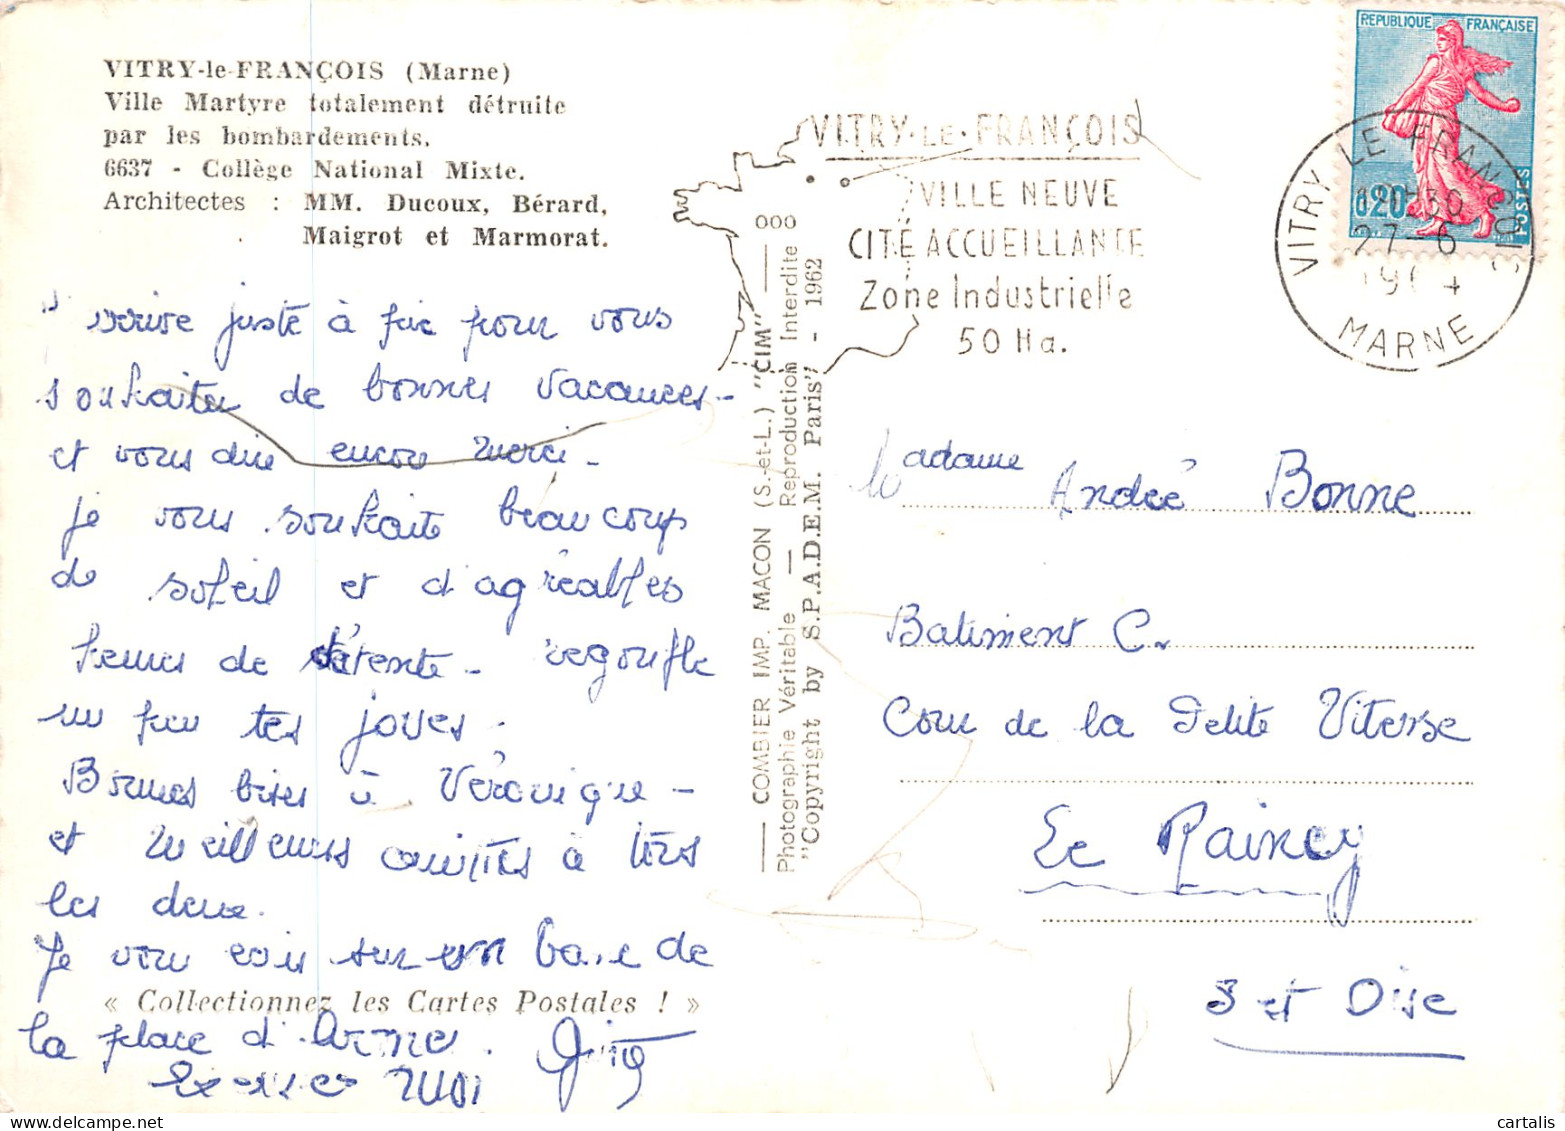 VITRY-le-FRANÇOIS (Marne)
Ville Martyre totalement détruite
par les bombardements.
6637 - Collège National Mixte.
Architectes : MM. Ducoux, Bérard,
Maigrot et Marmorat.
J'arrive juste à pic pour vous
souhaiter de bonnes vacances -
et vous dire encore merci -
je vous souhaite beaucoup
de soleil et d'agréables
heures de détente - regonfle
un peu tes joues.
Bonnes bises à Véronique -
et meilleures amitiés à tous
les deux.
Je vous écris sur un banc de
« Collectionnez les Cartes Postales ! »
la place d'Armes.
moi
— COMBIER IMP. MACON (S.-et-L.) "CIM" —
Photographie Véritable — Reproduction Interdite
"Copyright by S.P.A.D.E.M. Paris" - 1962
VITRY-LE-FRANÇOIS
VILLE NEUVE
CITÉ ACCUEILLANTE
Zone Industrielle
50 Ha.
000
REPUBLIQUE FRANÇAISE
0,20
POSTES
VITRY LE FRANÇOIS
27-6
MARNE
Madame André Bonne
Batiment C.
Cour de la Petite Vitesse
Le Raincy
S et Oise
cartalis